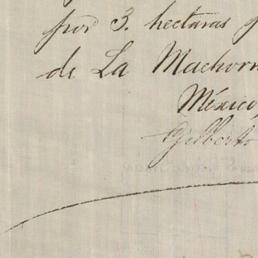 por 3. hectaras
de La Machorr
México,
Gilberto